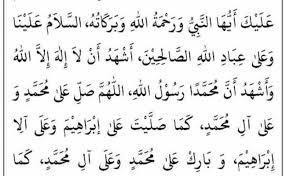 عَلَيْكَ أَيُّهَا النَّبِيُّ وَرَحْمَةُ اللهِ وَبَرَكَاتُهُ، السَّلَامُ عَلَيْنَا
وَعَلىٰ عِبَادِ اللهِ الصَّالِحِيْنَ، أَشْهَدُ أَنْ لَا إِلَهَ إِلَّا اللهُ
وَأَشْهَدُ أَنَّ مُحَمَّدًا رَسُوْلُ اللهِ، اللَّهُمَّ صَلِّ عَلىٰ مُحَمَّدٍ وَ
عَلىٰ آلِ مُحَمَّدٍ، كَمَا صَلَّيْتَ عَلىٰ إِبْرَاهِيْمَ وَعَلىٰ آلِ
إِبْرَاهِيْمَ، وَ بَارِكْ عَلىٰ مُحَمَّدٍ وَعَلىٰ آلِ مُحَمَّدٍ، كَمَا